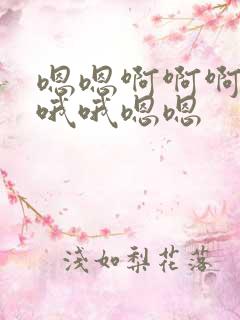 嗯嗯啊啊啊
哦哦嗯嗯
淺如梨花落